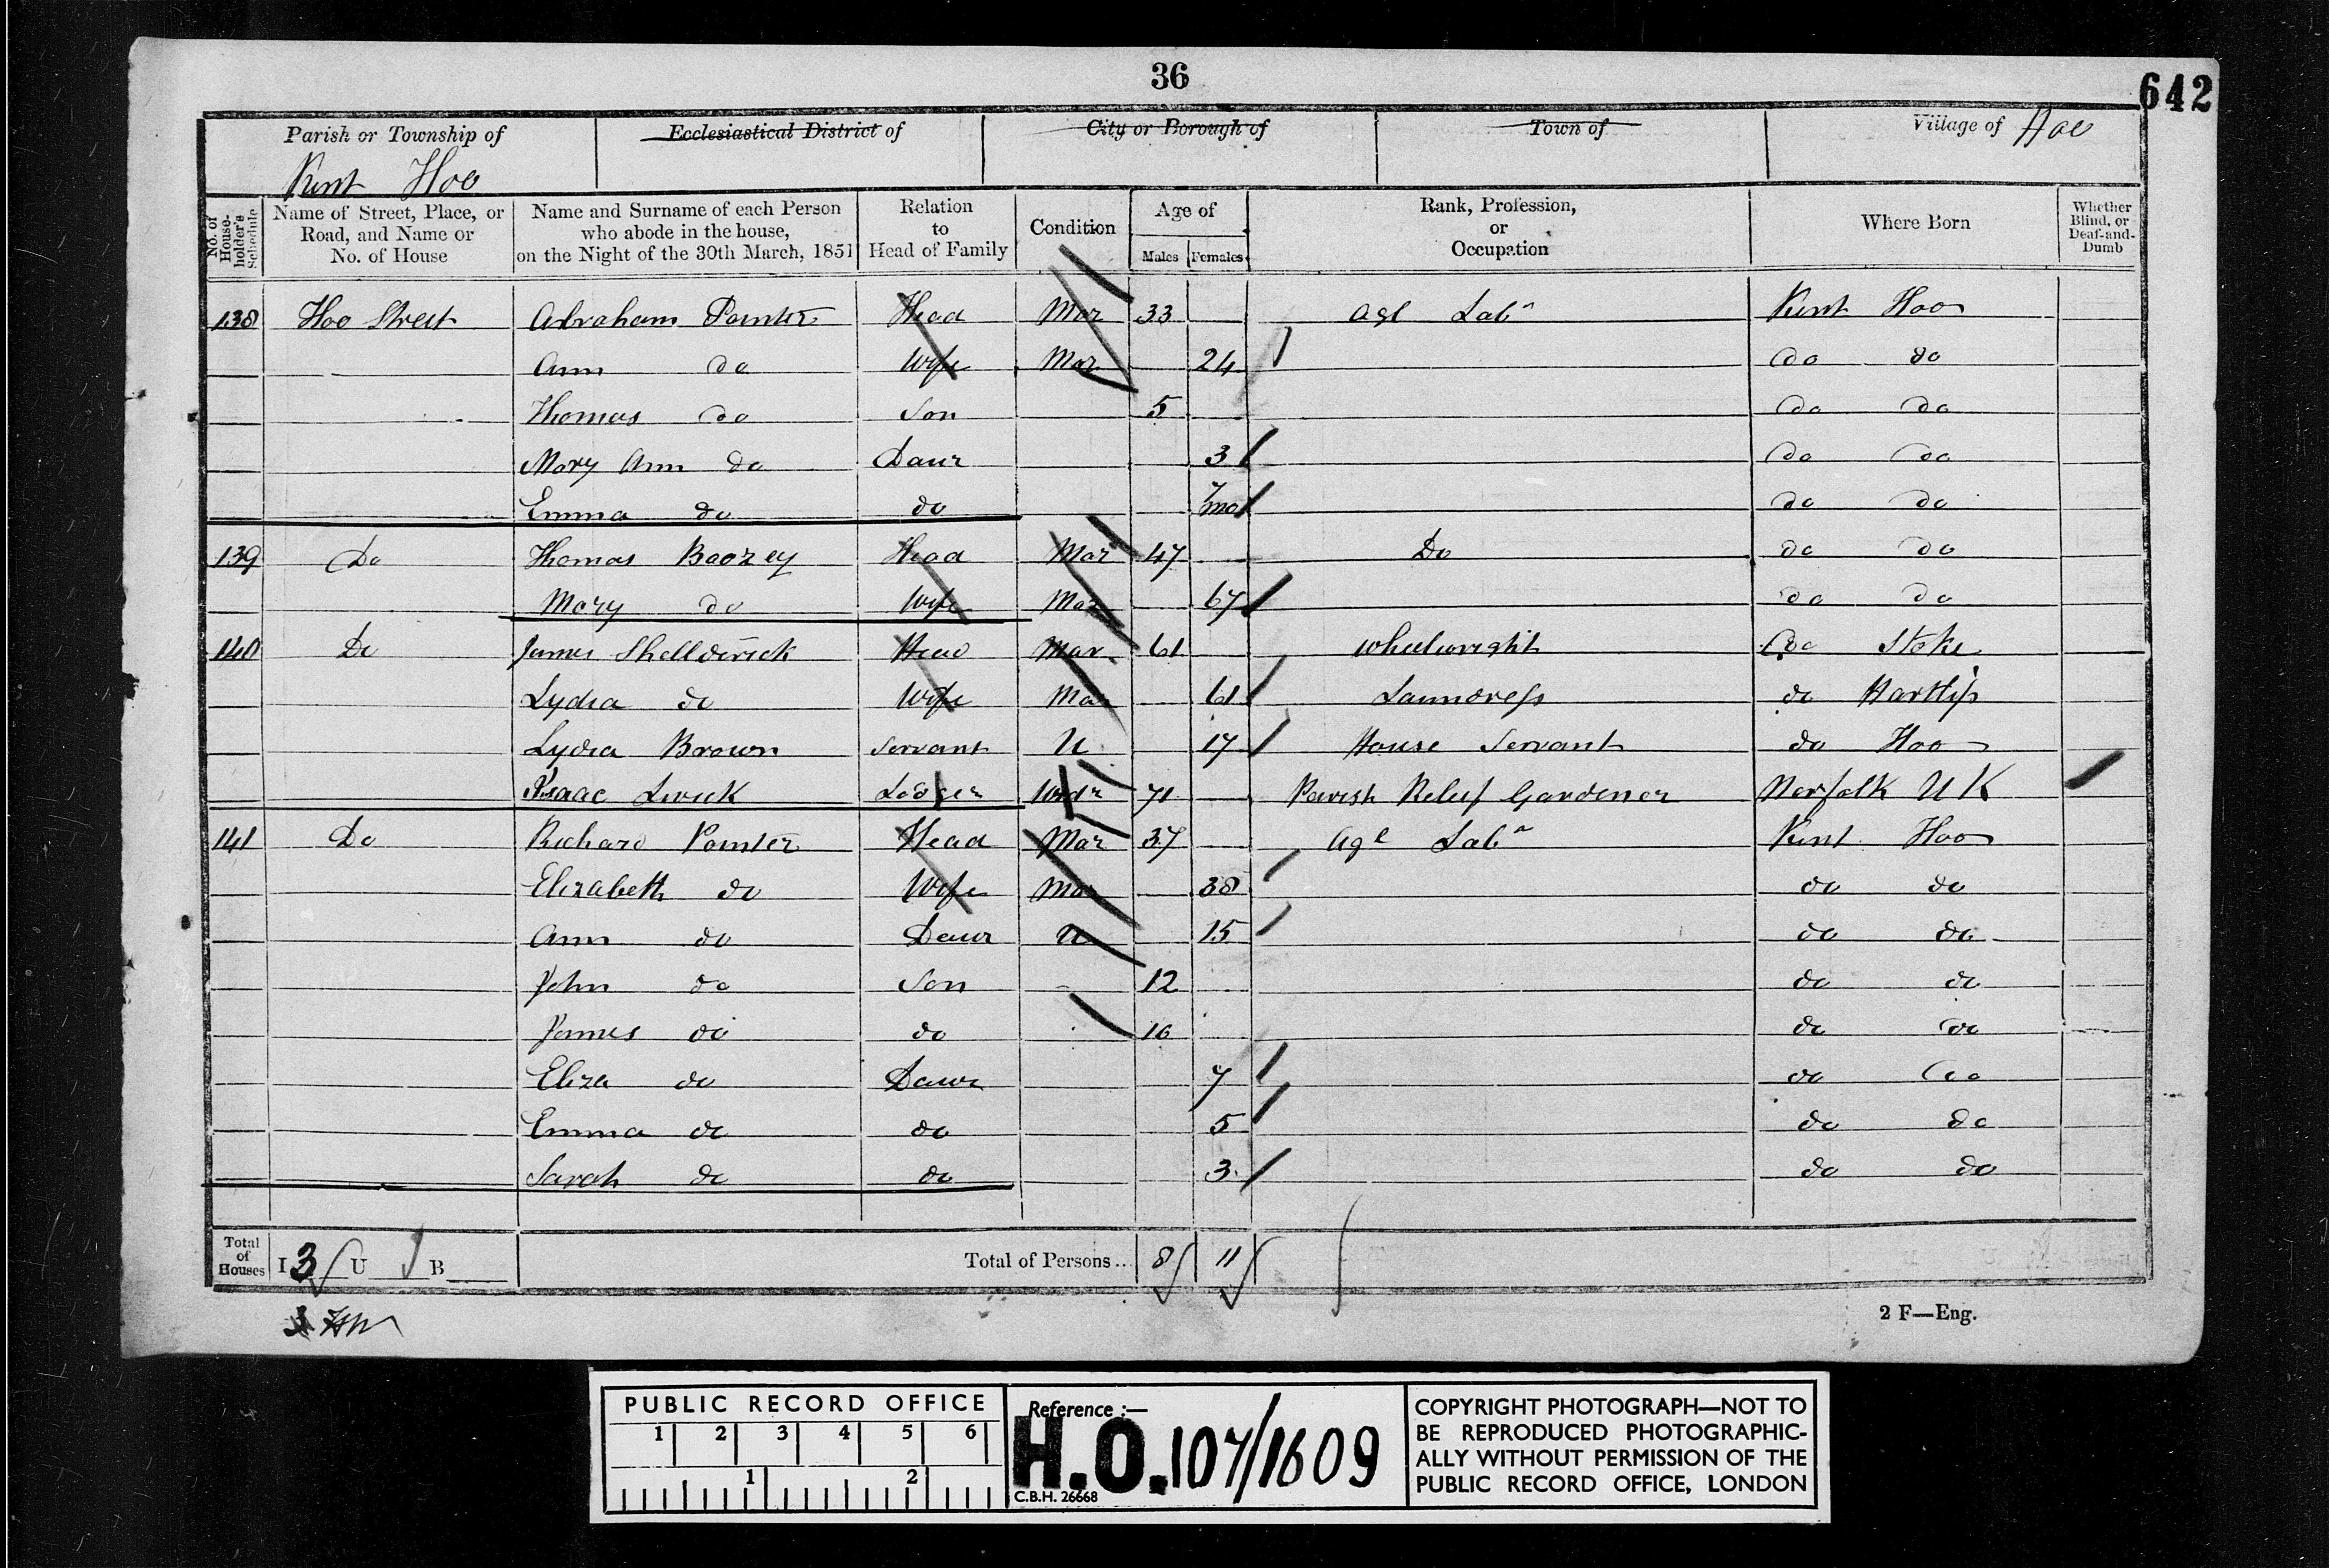 36
642
Parish or Township of
Kent Hoo
Ecclesiastical District of
City or Borough of
Town of
Village of Hoo
No. of House-holder's Schedule
Name of Street, Place, or Road, and Name or No. of House
Name and Surname of each Person who abode in the house, on the Night of the 30th March, 1851
Relation to Head of Family
Condition
Age of
Males Females
Rank, Profession, or Occupation
Where Born
Whether Blind, or Deaf-and-Dumb
138 Hoo Street Abraham Pointer Head Mar 33 Agl Labr Kent Hoo
Ann do Wife Mar 24 do do
Thomas do Son 5 do do
Mary Ann do Daur 3 do do
Emma do do 7 mo do do
139 Do Thomas Boozey Head Mar 47 Do do do
Mary do Wife Mar 67 do do
140 Do James Shellderick Head Mar 61 Wheelwright Do Stoke
Lydia do Wife Mar 61 Laundress do Hartlip
Lydia Brown Servant U 17 House Servant do Hoo
Isaac Lodger Widr 71 Parish Relief Gardener Norfolk U K
141 Do Richard Pointer Head Mar 37 Agl Labr Kent Hoo
Elizabeth do Wife Mar 38 do do
Ann do Daur U 15 do do
John do Son 12 do do
James do do 10 do do
Eliza do Daur 7 do do
Emma do do 5 do do
Sarah do do 3 do do
Total of Houses I 3 U B
Total of Persons... 8 11
2 F—Eng.
PUBLIC RECORD OFFICE
1 2 3 4 5 6
1 2
Reference :—
H.O. 107/1609
C.B.H. 26668
COPYRIGHT PHOTOGRAPH—NOT TO
BE REPRODUCED PHOTOGRAPHIC-
ALLY WITHOUT PERMISSION OF THE
PUBLIC RECORD OFFICE, LONDON